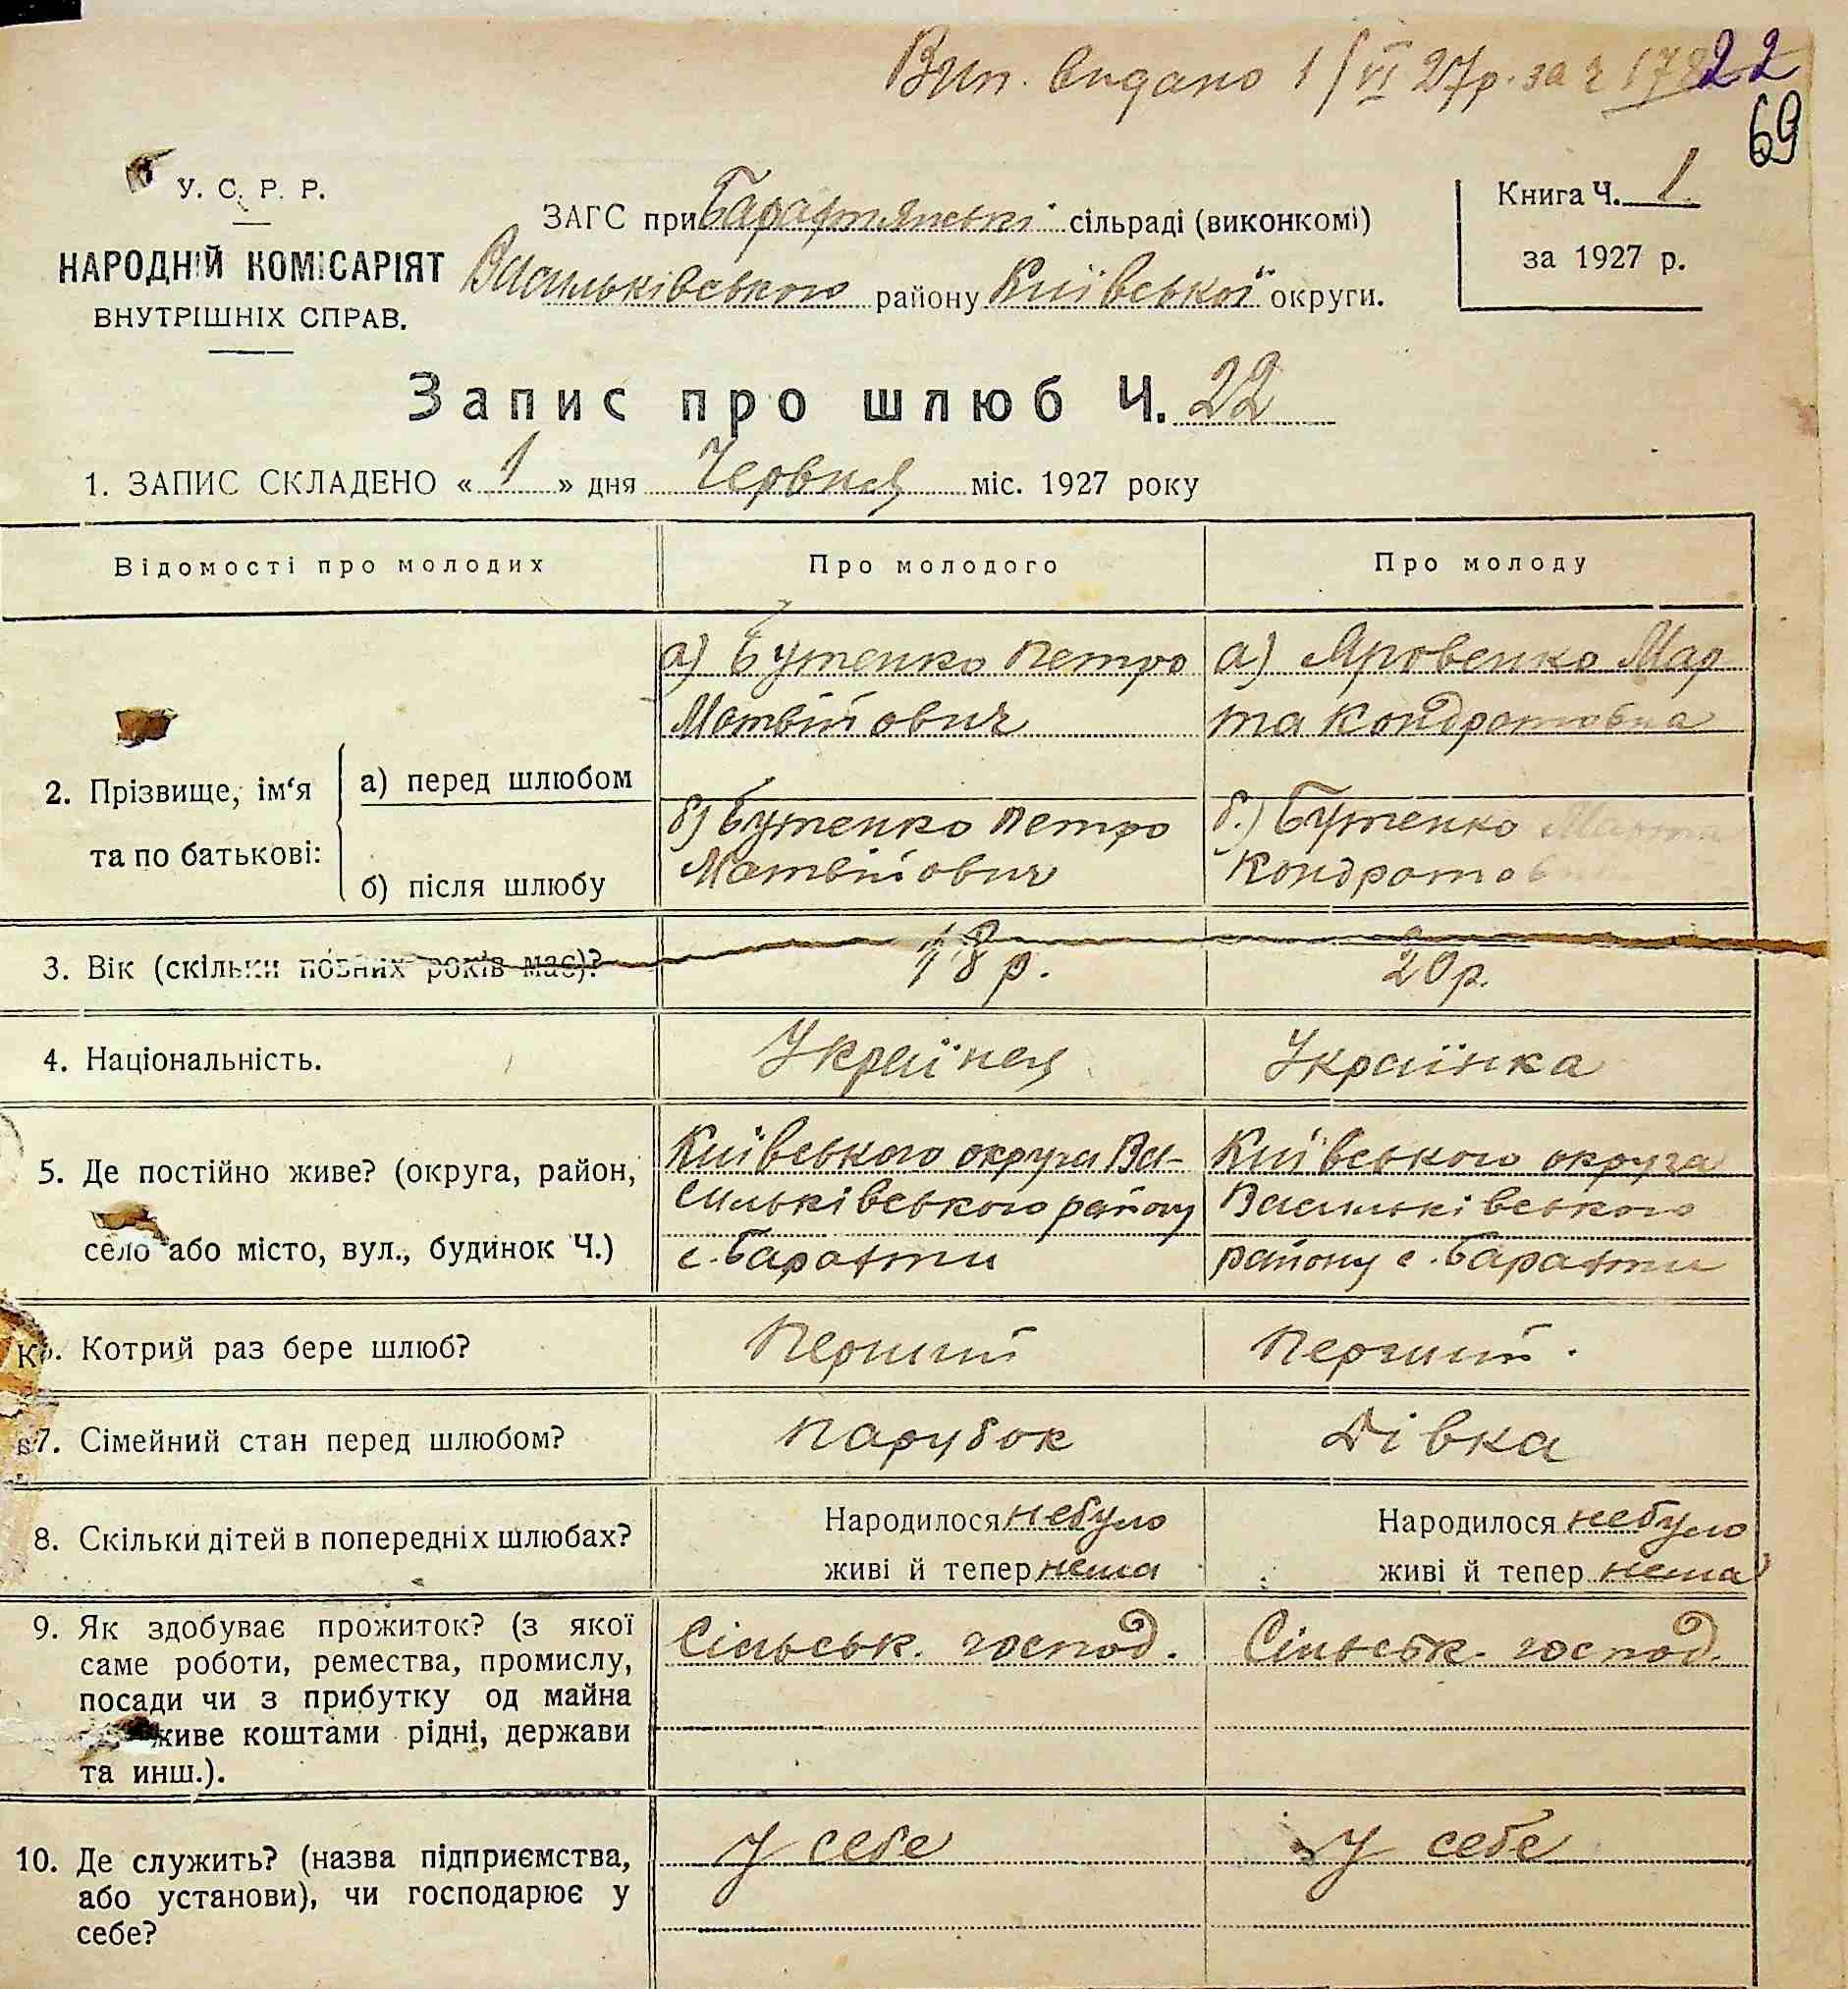 Вип. видано 1/VI 27р. за ч
22
69
У. С. Р. Р.
НАРОДНІЙ КОМІСАРІЯТ
ВНУТРІШНІХ СПРАВ.
ЗАГС при Барахтянські сільраді (виконкомі)
Васильківського району Київської округи.
Книга Ч. 1.
за 1927 р.
Запис про шлюб Ч. 22
1. ЗАПИС СКЛАДЕНО « 1 » дня Червня міс. 1927 року
Відомості про молодих
Про молодого
Про молоду
2. Прізвище, ім‘я
та по батькові:
а) перед шлюбом
б) після шлюбу
а) Бутенко Петро
Матвійович
б) Бутенко Петро
Матвійович
а) Яровенко Мар
та Кондратовна
б.) Бутенко Марта
Кондратов
3. Вік (скільки повних років має)?
18 р.
20 р.
4. Національність.
Українец
Українка
5. Де постійно живе? (округа, район,
село або місто, вул., будинок Ч.)
Київського округа Ва-
сильківського району
с. Барахти
Київського округа
Васильківського
району с. Барахти
Котрий раз бере шлюб?
Перший
Перший.
7. Сімейний стан перед шлюбом?
парубок
Дівка
8. Скільки дітей в попередніх шлюбах?
Народилося небуло
живі й тепер нема
Народилося небуло
живі й тепер нема
9. Як здобуває прожиток? (з якої
саме роботи, ремества, промислу,
посади чи з прибутку од майна
живе коштами рідні, держави
та инш.).
Сільськ. господ.
Сільськ. господ.
10. Де служить? (назва підприємства,
або установи), чи господарює у
себе?
У себе
У себе